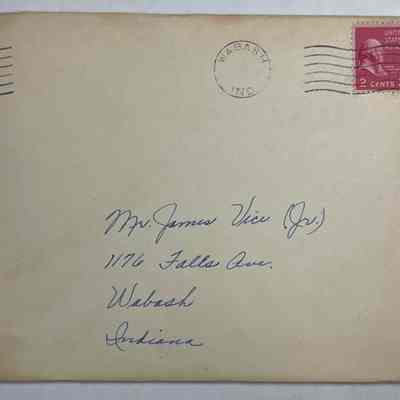 WABASH
IND.
UNITED
STATES
2 CENTS
Mr. James Vice (Jr.)
1176 Falls Ave.
Wabash
Indiana